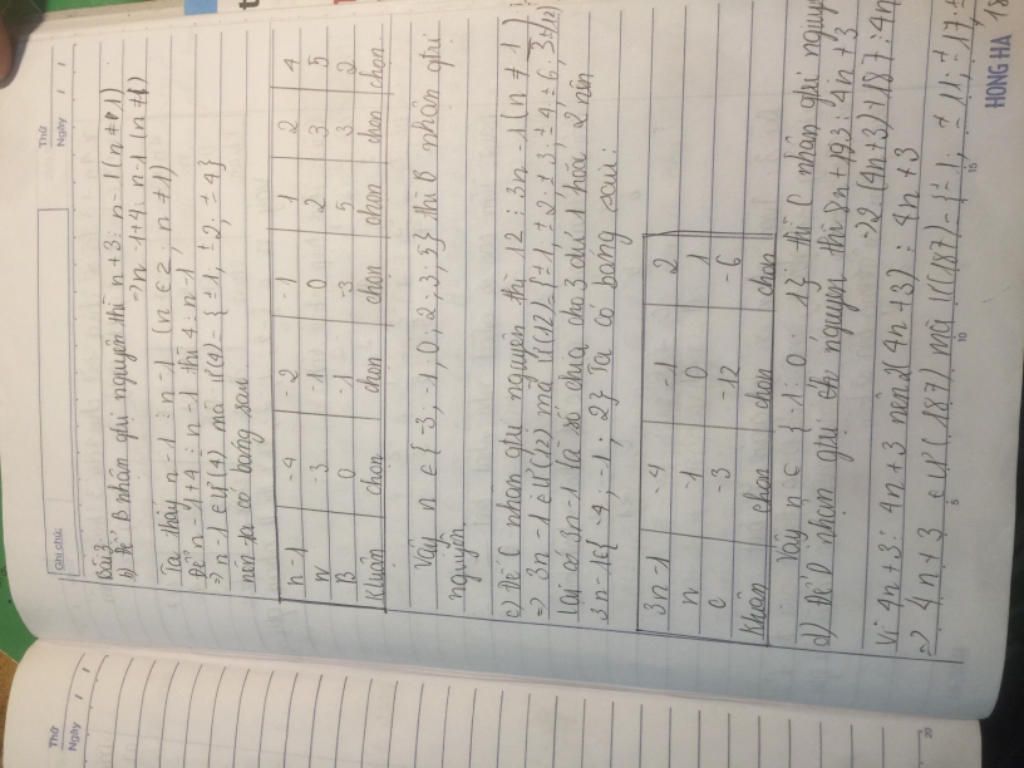 Thứ
Ngày
Ghi chú:
Bài 3
b) Để B nhận giá trị nguyên thì n+3 ⋮ n-1 (n≠1)
=> n-1+4 ⋮ n-1 (n≠1)
Ta thấy n-1 ⋮ n-1 (n∈Z; n≠1)
Để n-1+4 ⋮ n-1 thì 4 ⋮ n-1
=> n-1 ∈ Ư(4) mà Ư(4) = {±1; ±2; ±4}
nên ta có bảng sau
n-1 -4 -2 -1 1 2 4
n -3 -1 0 2 3 5
B 0 -1 -3 5 3 2
chọn chọn chọn chọn chọn chọn
Vậy n ∈ {-3; -1; 0; 2; 3; 5} thì B nhận
nguyên
c) Để C nhận giá trị nguyên thì 12 ⋮ 3n-1 (n≠
=> 3n-1 ∈ Ư(12) mà Ư(12) = {±1; ±2; ±3; ±4; ±6;
Lại có 3n-1 là số chia cho 3 dư 1 hoặc 2 nên
3n-1 ∈ {-4; -1; 2} Ta có bảng sau:
3n-1 -4 -1 2
n -1 0 1
C -3 -12 -6
chọn chọn chọn
Vậy n ∈ {-1; 0; 1} thì C nhận giá nguyê
d) Để D nhận giá nguyên thì 8n+193 ⋮ 4n+3
=> 2(4n+3)+187 ⋮ 4n
Vì 4n+3 ⋮ 4n+3 nên 2(4n+3) ⋮ 4n+3
=> 4n+3 ∈ Ư(187) mà Ư(187) = {±1; ±11; ±17;
5
10
15
HONG HA
18
Thứ
Ngày
20